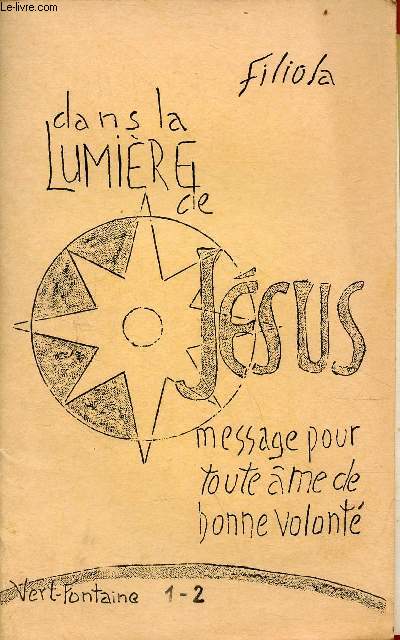 Le-livre.com
Filiola
dans la
LUMIÈRE
de
JÉSUS
message pour
toute âme de
bonne volonté
Vert-Fontaine 1-2